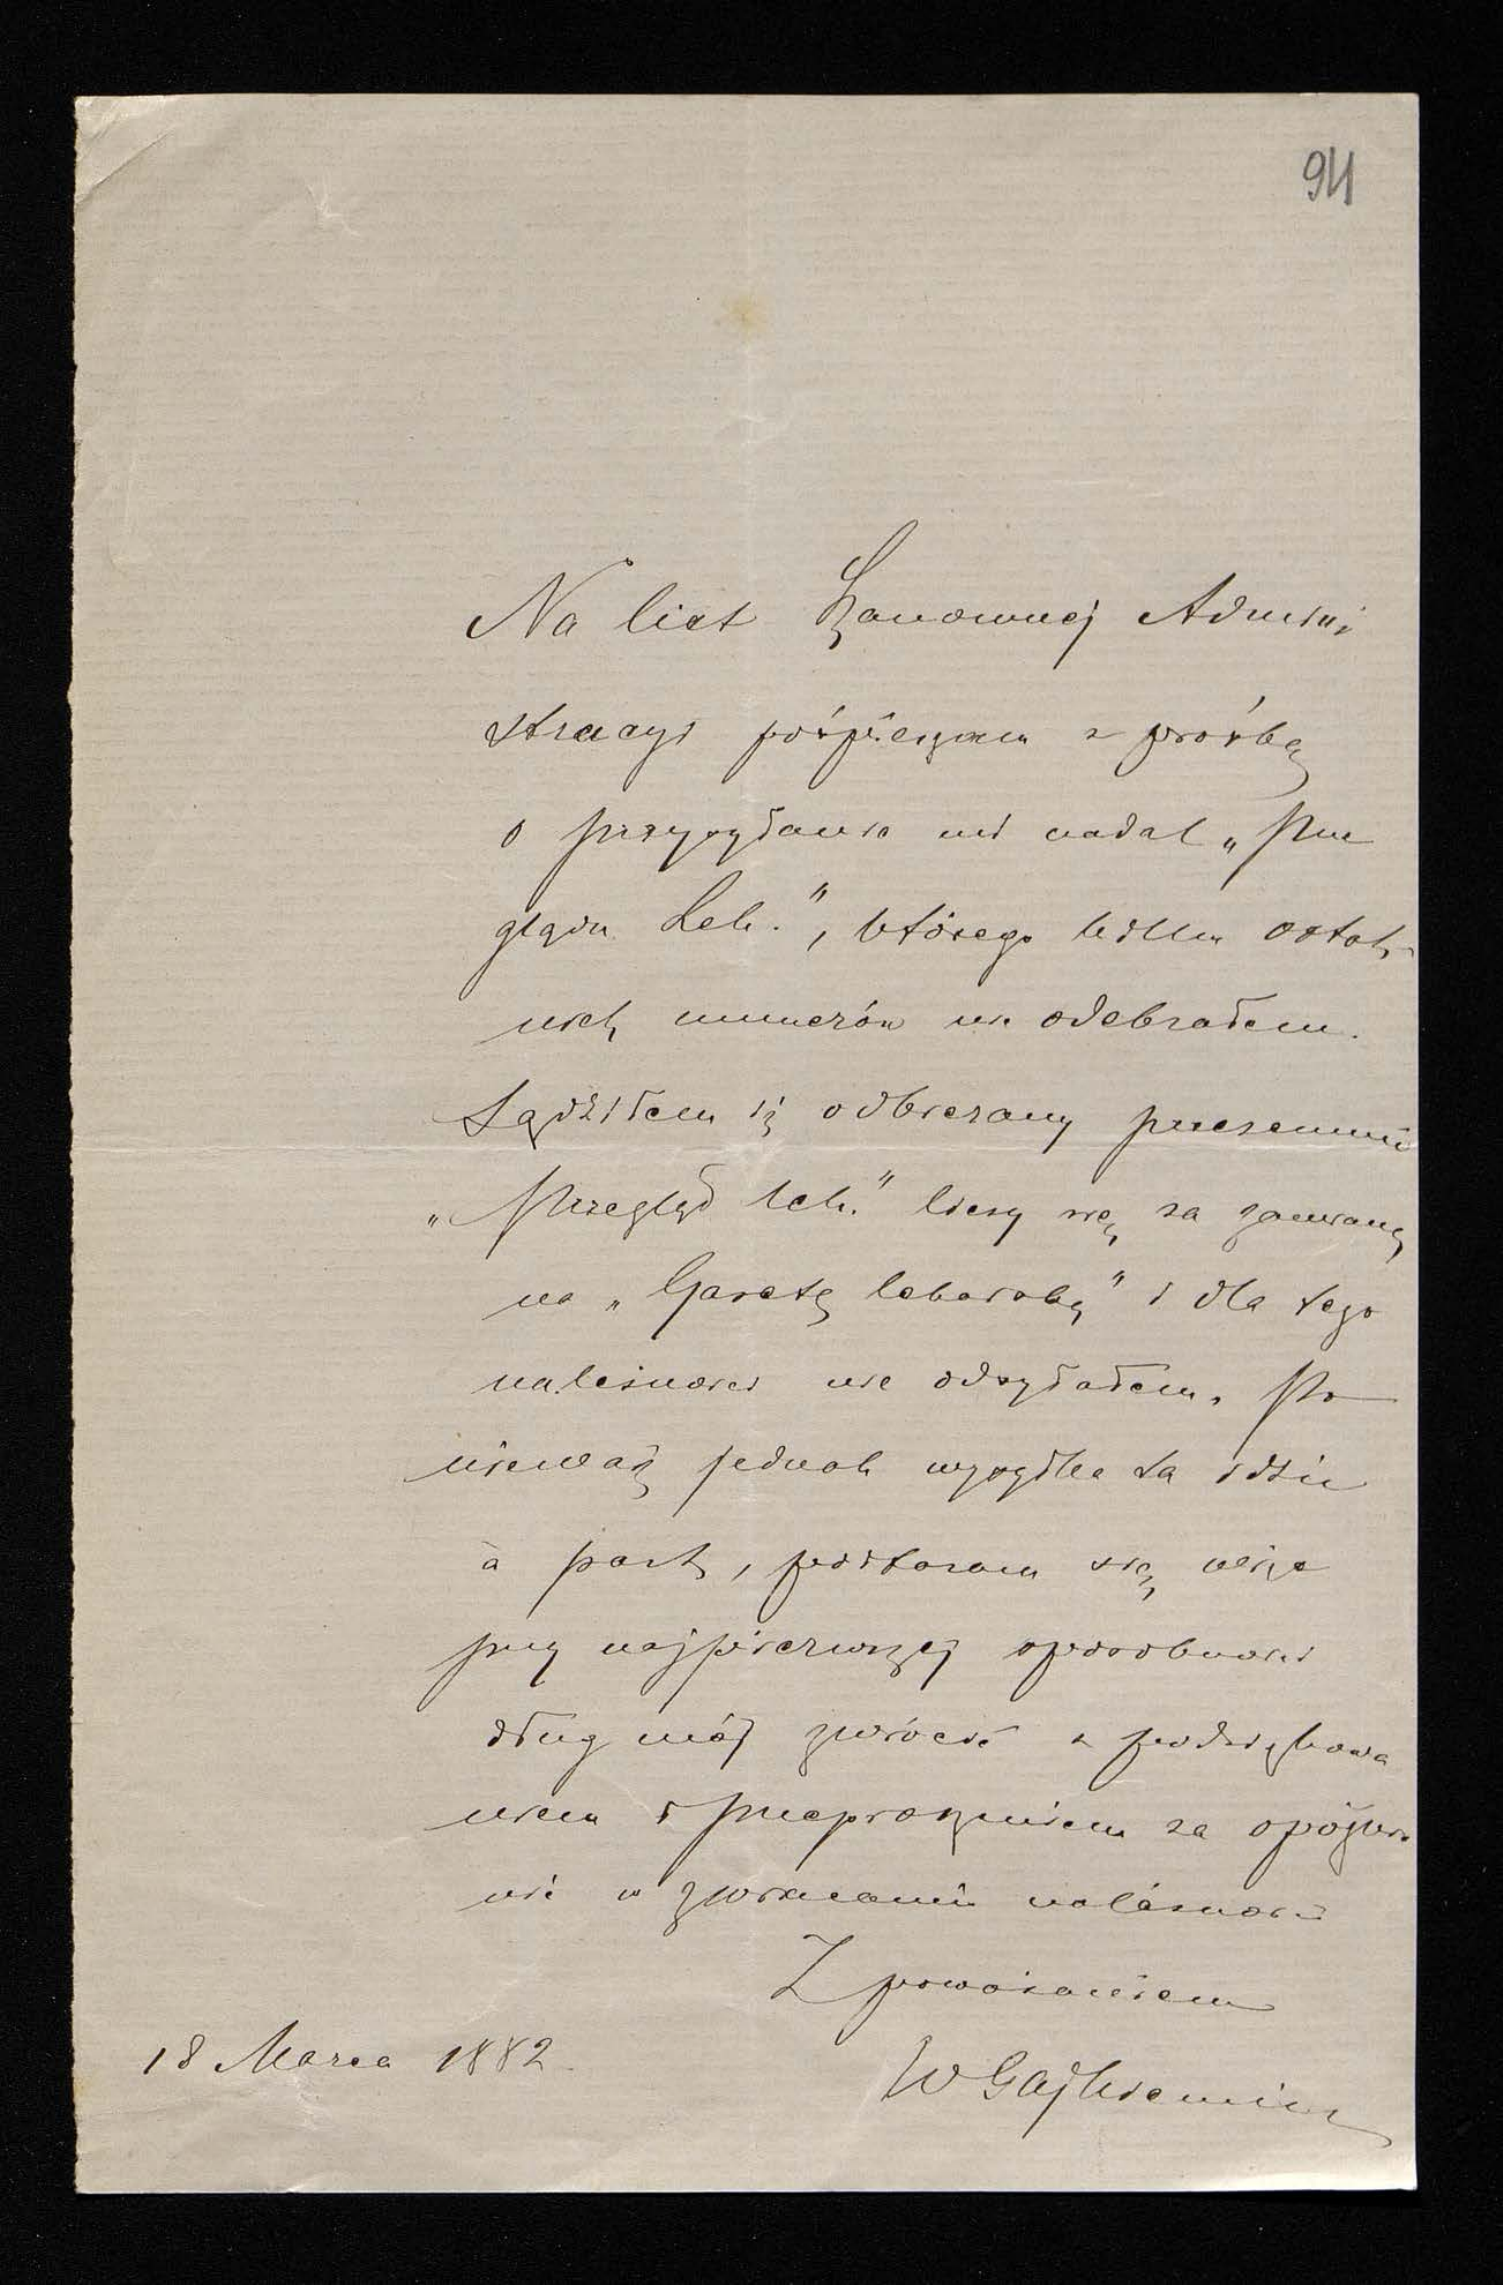 94
Na list Szanownej Admini
stracyi pośpieszam z prośbą
o przysyłanie mi nadal „Prze
glądu Lek.", którego kilku ostat
nich numerów nie odebrałem.
Sądziłem iż odbierany przezemnie
„Przegląd lek." liczy się za zamianę
na „Gazetę lekarską" i dla tego
należności nie odsyłałem. Po
nieważ jednak wysyłka ta idzie
à part, postaram się więc
przy najpierwszej sposobności
dług mój zwrócić z podziękowa
niem i przeproszeniem za opóźnie
nie w zwracaniu należności
Z poważaniem
18 Marca 1882.
W Gajkiewicz